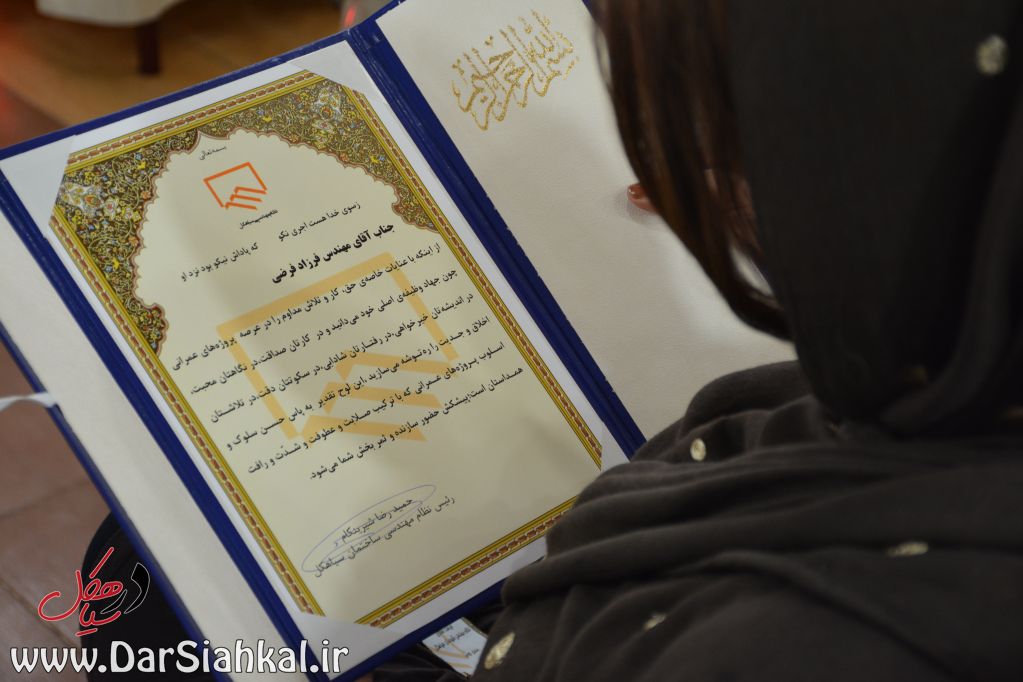 بسم الله الرحمن الرحیم
بسمه تعالی
که پاداش نیکو بود نزد او    زسوی خدا هست اجری نکو
جناب آقای مهندس فرزاد فرضی
از اینکه با عنایات خاصه‌ی حق، کار و تلاش مداوم را در عرصه پروژه‌های عمرانی
چون جهاد وظیفه‌ی اصلی خود می‌دانید و در کارتان صداقت،در نگاهتان محبت،
در اندیشه‌تان خیرخواهی،در رفتارتان شادابی،در سکوتتان دقت،در تلاشتان
اخلاق و جدیت را ره‌توشه می‌سازید،این لوح تقدیر به پاس حسن سلوک و
اسلوب پروژه‌های عمرانی که با ترکیب صلابت و عطوفت و شدت و رافت
همداستان است؛پیشکش حضور سازنده و ثمربخش شما می‌شود.
حمید رضا شیربنگام
رئیس نظام مهندسی ساختمان سیاهکل
در سیاهکل
www.DarSiahkal.ir